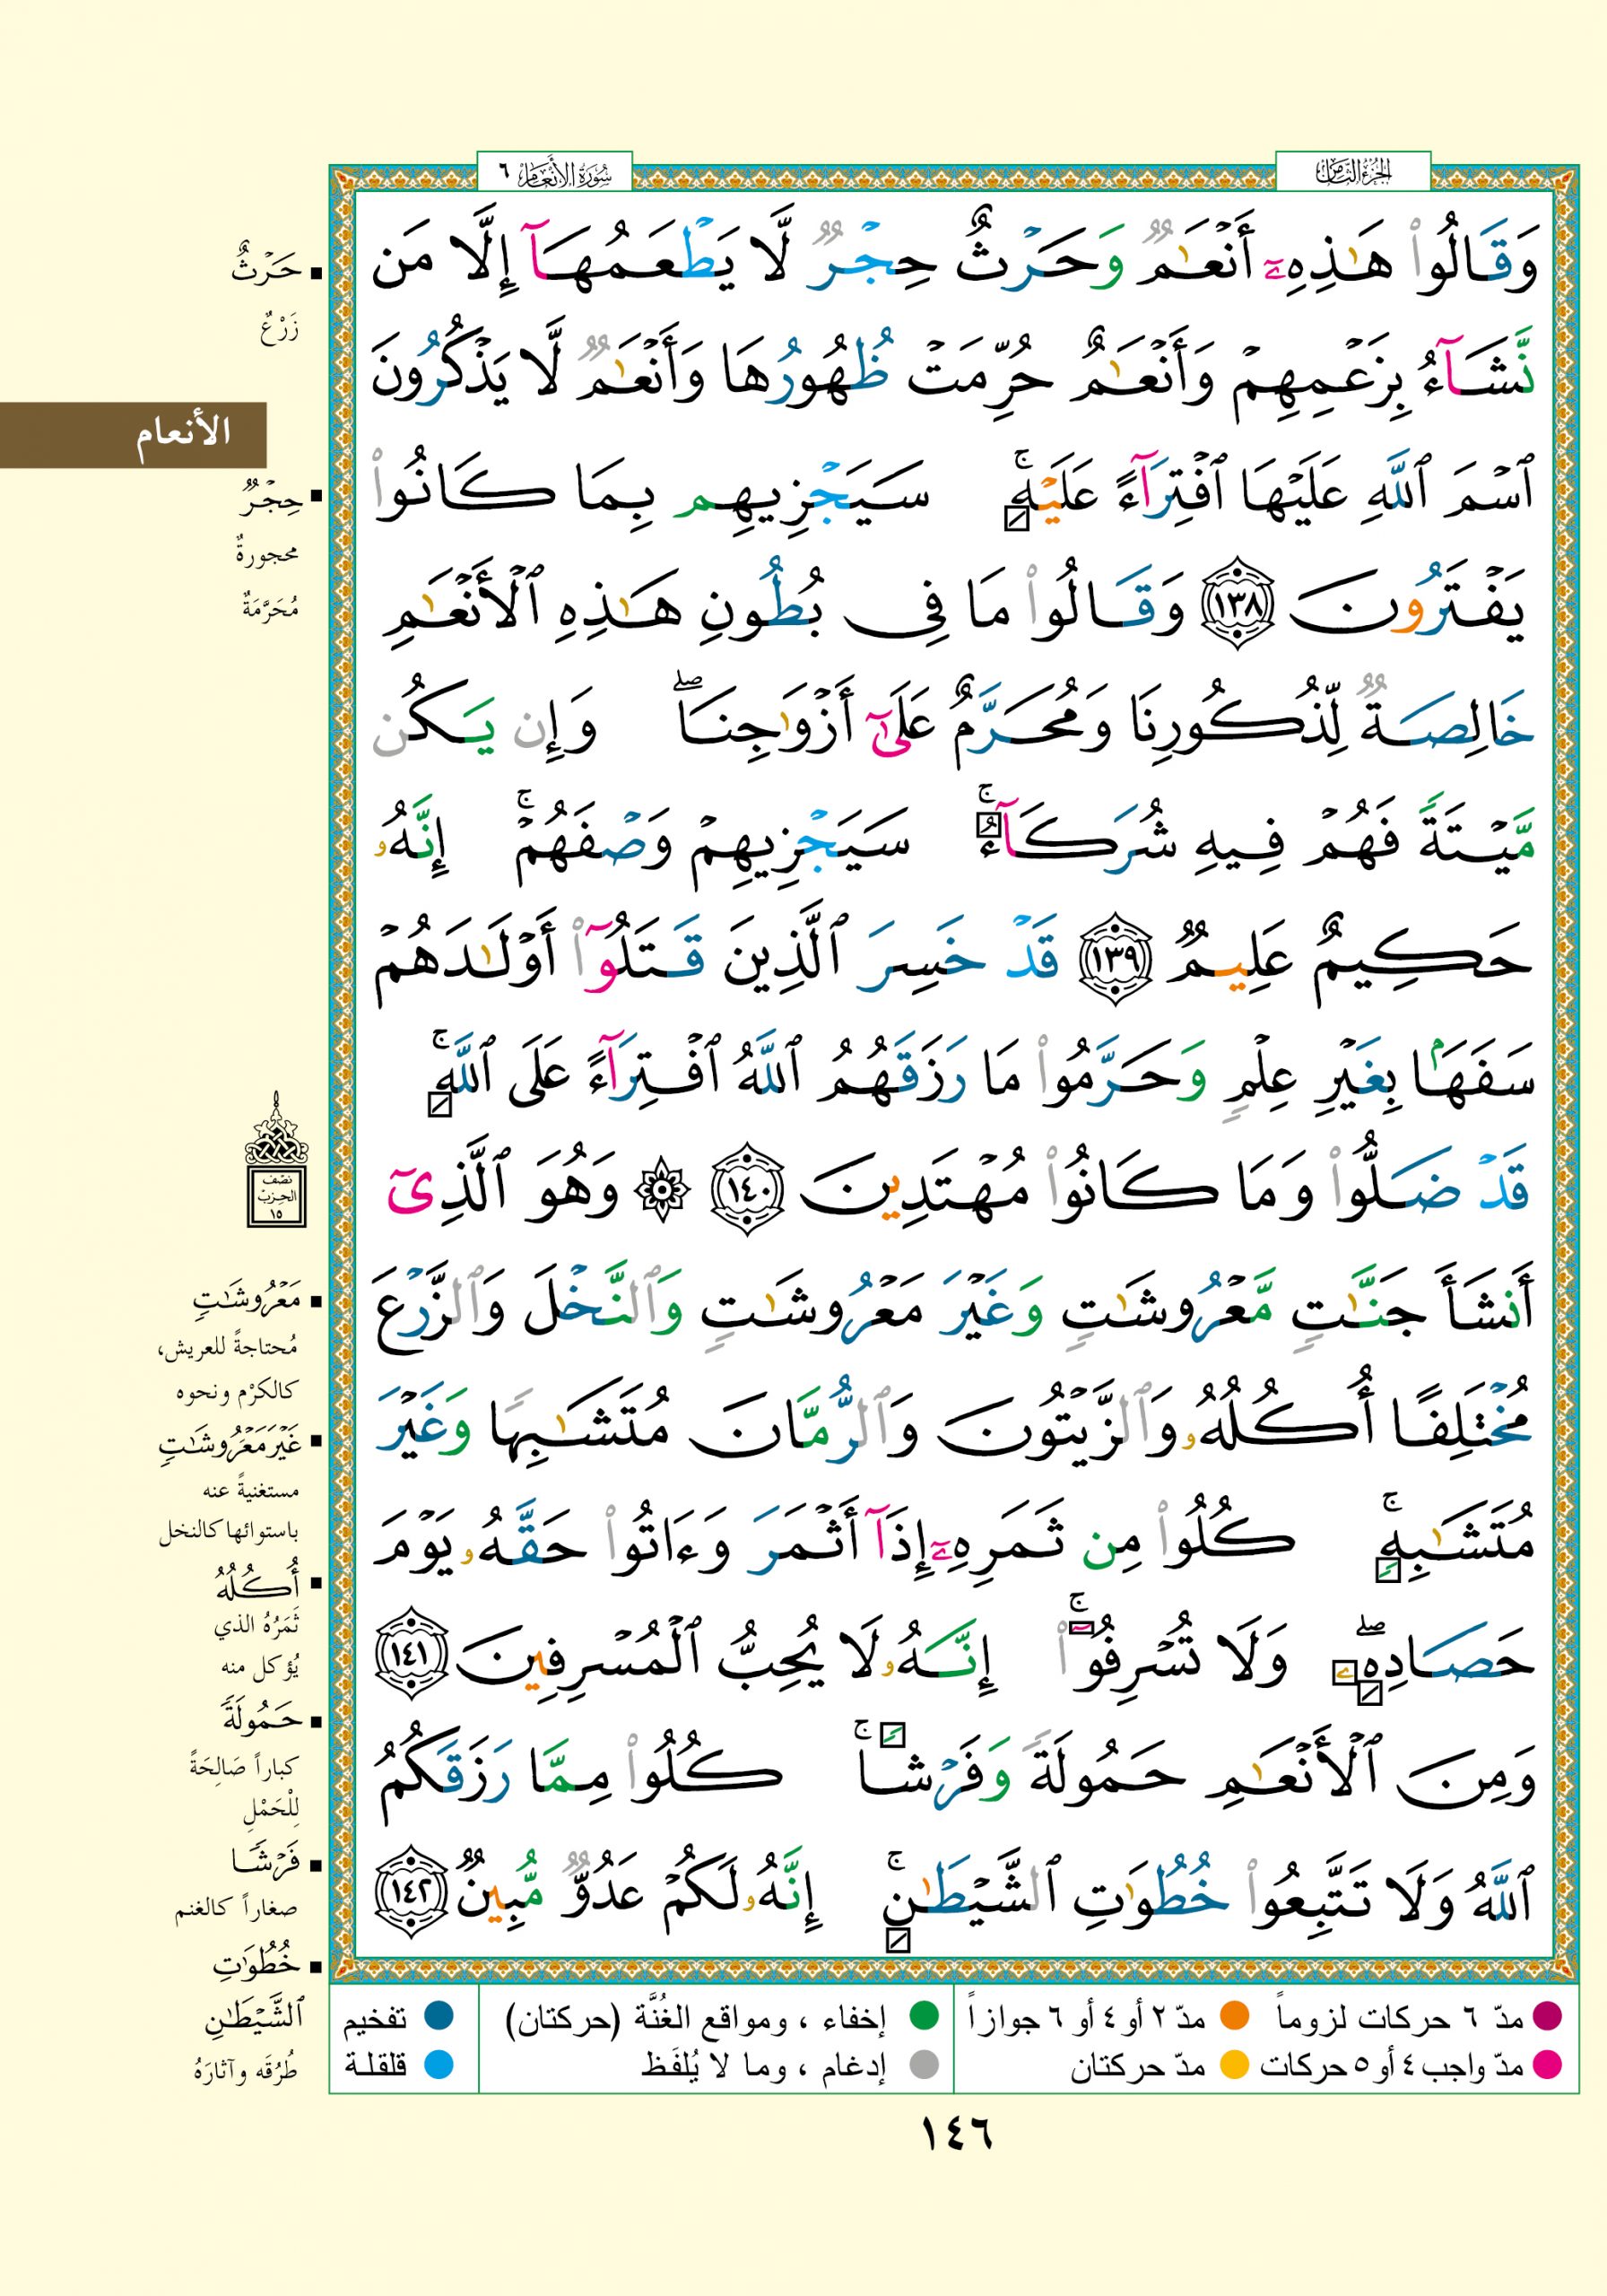 الجزء الثامن
سورة الأنعام ٦
وَقَالُوا۟ هَـٰذِهِۦٓ أَنْعَـٰمٌ وَحَرْثٌ حِجْرٌ لَّا يَطْعَمُهَآ إِلَّا مَن
نَّشَآءُ بِزَعْمِهِمْ وَأَنْعَـٰمٌ حُرِّمَتْ ظُهُورُهَا وَأَنْعَـٰمٌ لَّا يَذْكُرُونَ
ٱسْمَ ٱللَّهِ عَلَيْهَا ٱفْتِرَآءً عَلَيْهِ ۚ سَيَجْزِيهِم بِمَا كَانُوا۟
يَفْتَرُونَ ١٣٨ وَقَالُوا۟ مَا فِى بُطُونِ هَـٰذِهِ ٱلْأَنْعَـٰمِ
خَالِصَةٌ لِّذُكُورِنَا وَمُحَرَّمٌ عَلَىٰٓ أَزْوَٰجِنَا ۖ وَإِن يَكُن
مَّيْتَةً فَهُمْ فِيهِ شُرَكَآءُ ۚ سَيَجْزِيهِمْ وَصْفَهُمْ ۚ إِنَّهُۥ
حَكِيمٌ عَلِيمٌ ١٣٩ قَدْ خَسِرَ ٱلَّذِينَ قَتَلُوٓا۟ أَوْلَـٰدَهُمْ
سَفَهًۢا بِغَيْرِ عِلْمٍ وَحَرَّمُوا۟ مَا رَزَقَهُمُ ٱللَّهُ ٱفْتِرَآءً عَلَى ٱللَّهِ ۚ
قَدْ ضَلُّوا۟ وَمَا كَانُوا۟ مُهْتَدِينَ ١٤٠ ۞ وَهُوَ ٱلَّذِىٓ
أَنشَأَ جَنَّـٰتٍ مَّعْرُوشَـٰتٍ وَغَيْرَ مَعْرُوشَـٰتٍ وَٱلنَّخْلَ وَٱلزَّرْعَ
مُخْتَلِفًا أُكُلُهُۥ وَٱلزَّيْتُونَ وَٱلرُّمَّانَ مُتَشَـٰبِهًا وَغَيْرَ
مُتَشَـٰبِهٍ ۚ كُلُوا۟ مِن ثَمَرِهِۦٓ إِذَآ أَثْمَرَ وَءَاتُوا۟ حَقَّهُۥ يَوْمَ
حَصَادِهِۦ ۖ وَلَا تُسْرِفُوٓا۟ ۚ إِنَّهُۥ لَا يُحِبُّ ٱلْمُسْرِفِينَ ١٤١
وَمِنَ ٱلْأَنْعَـٰمِ حَمُولَةً وَفَرْشًا ۚ كُلُوا۟ مِمَّا رَزَقَكُمُ
ٱللَّهُ وَلَا تَتَّبِعُوا۟ خُطُوَٰتِ ٱلشَّيْطَـٰنِ ۚ إِنَّهُۥ لَكُمْ عَدُوٌّ مُّبِينٌ ١٤٢
حَرْثٌ
زَرْعٌ
الأنعام
حِجْرٌ
محجورةٌ
مُحَرَّمَةٌ
نصف
الحزب
١٥
مَعْرُوشَـٰتٍ
مُحتاجةً للعريش،
كالكَرْم ونحوه
غَيْرَ مَعْرُوشَـٰتٍ
مستغنيةً عنه
باستوائها كالنخل
أُكُلُهُ
ثَمَرُهُ الذي
يُؤكل منه
حَمُولَةً
كباراً صَالِحَةً
لِلْحَمْلِ
فَرْشًا
صغاراً كالغنم
خُطُوَٰتِ
ٱلشَّيْطَـٰنِ
طُرُقَه وآثارَهُ
مدّ ٦ حركات لزوماً مدّ ٢ أو ٤ أو ٦ جوازاً إخفاء ، ومواقع الغُنَّة (حركتان) تفخيم
مدّ واجب ٤ أو ٥ حركات مدّ حركتان إدغام ، وما لا يُلفَظ قلقلة
١٤٦